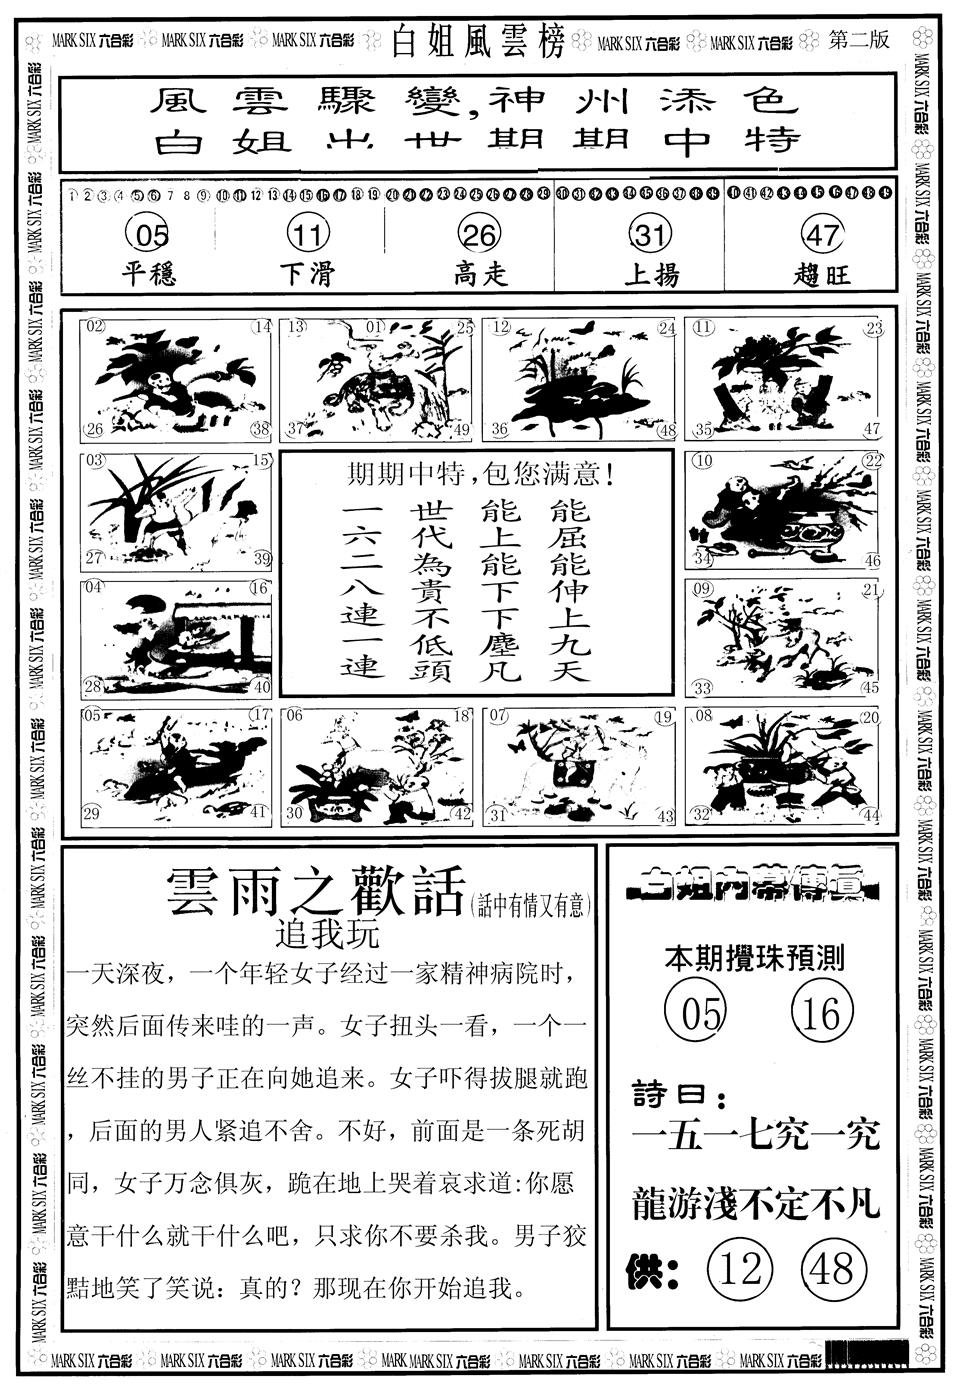 MARK SIX 六合彩 MARK SIX 六合彩 MARK SIX 六合彩 白姐風雲榜 MARK SIX 六合彩 MARK SIX 六合彩 第二版
風雲驟變,神州添色
白姐出世期期中特
1 2 3 4 5 6 7 8 9 10 11 12 13 14 15 16 17 18 19 20 21 22 23 24 25 26 27 28 29 30 31 32 33 34 35 36 37 38 39 40 41 42 43 44 45 46 47 48 49
05 11 26 31 47
平穩 下滑 高走 上揚 趨旺
02 14 26 38
13 01 25 37 49
12 24 36 48
11 23 35 47
03 15 27 39
期期中特,包您满意!
能屈能伸上九天
能上能下下塵凡
世代為貴不低頭
一六二八連一連
10 22 34 46
04 16 28 40
09 21 33 45
05 17 29 41
06 18 30 42
07 19 31 43
08 20 32 44
雲雨之歡話(話中有情又有意)
追我玩
一天深夜，一个年轻女子经过一家精神病院时，
突然后面传来哇的一声。女子扭头一看，一个一
丝不挂的男子正在向她追来。女子吓得拔腿就跑
，后面的男人紧追不舍。不好，前面是一条死胡
同，女子万念俱灰，跪在地上哭着哀求道:你愿
意干什么就干什么吧，只求你不要杀我。男子狡
黠地笑了笑说：真的？那现在你开始追我。
白姐内幕傳真
本期攪珠預測
05 16
詩曰：
一五一七究一究
龍游淺不定不凡
供： 12 48
MARK SIX 六合彩 MARK SIX 六合彩 MARK SIX 六合彩 MARK MARK SIX 六合彩 MARK SIX 六合彩 MARK SIX 六合彩 MARK SIX 六合彩